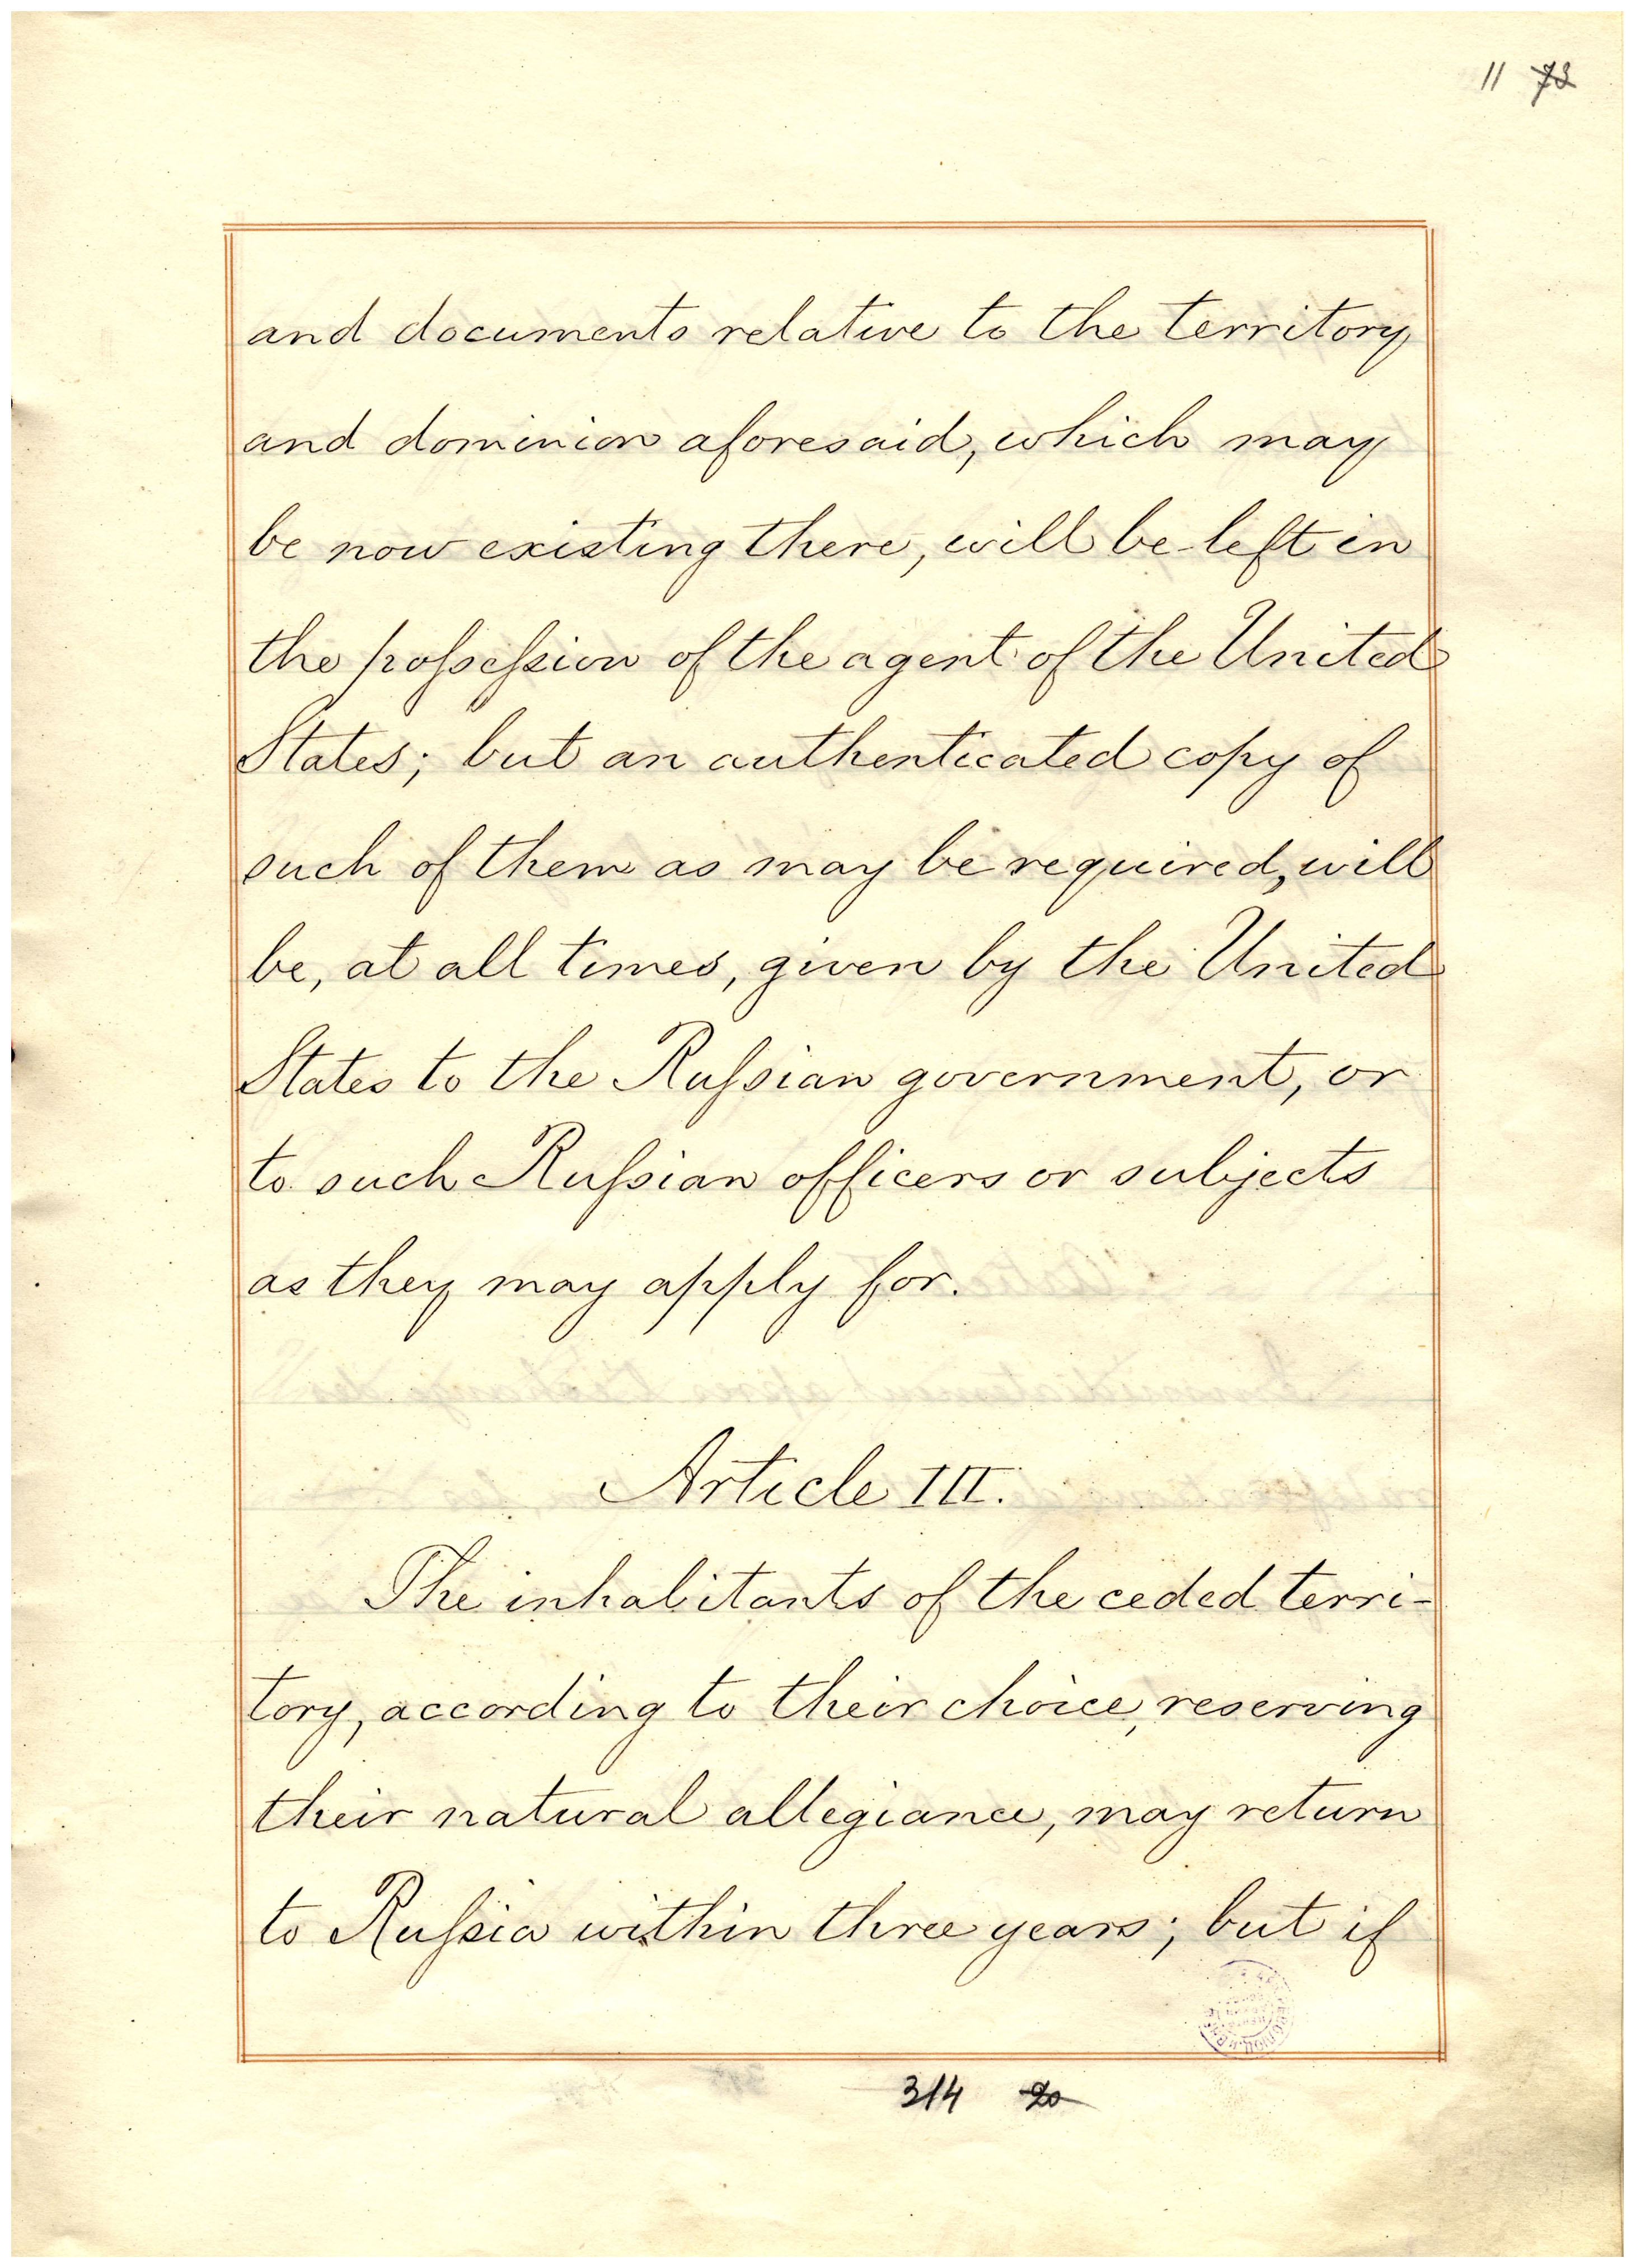 11 73
and documents relative to the territory
and dominion aforesaid, which may
be now existing there, will be left in
the possession of the agent of the United
States; but an authenticated copy of
such of them as may be required, will
be, at all times, given by the United
States to the Russian government, or
to such Russian officers or subjects
as they may apply for.
Article III.
The inhabitants of the ceded terri-
tory, according to their choice, reserving
their natural allegiance, may return
to Russia within three years; but if
314 20